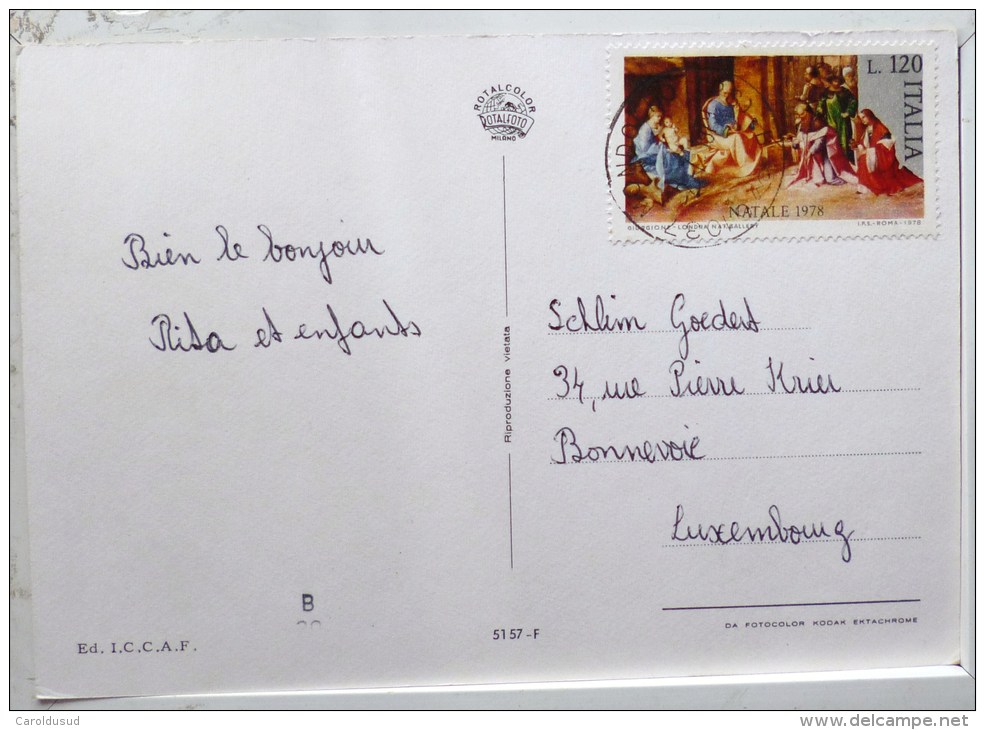 ROTALCOLOR
ROTALFOTO
MILANO
L. 120
ITALIA
NATALE 1978
GIORGIONE - LONDRA NAT. GALLERY
I.P.S. - ROMA - 1978
Bien le bonjour
Rita et enfants
Riproduzione vietata
Schlim Goedert
34, rue Pierre Krier
Bonnevoie
Luxembourg
B
Ed. I.C.C.A.F.
51 57 - F
DA FOTOCOLOR KODAK EKTACHROME
Caroldusud
www.delcampe.net